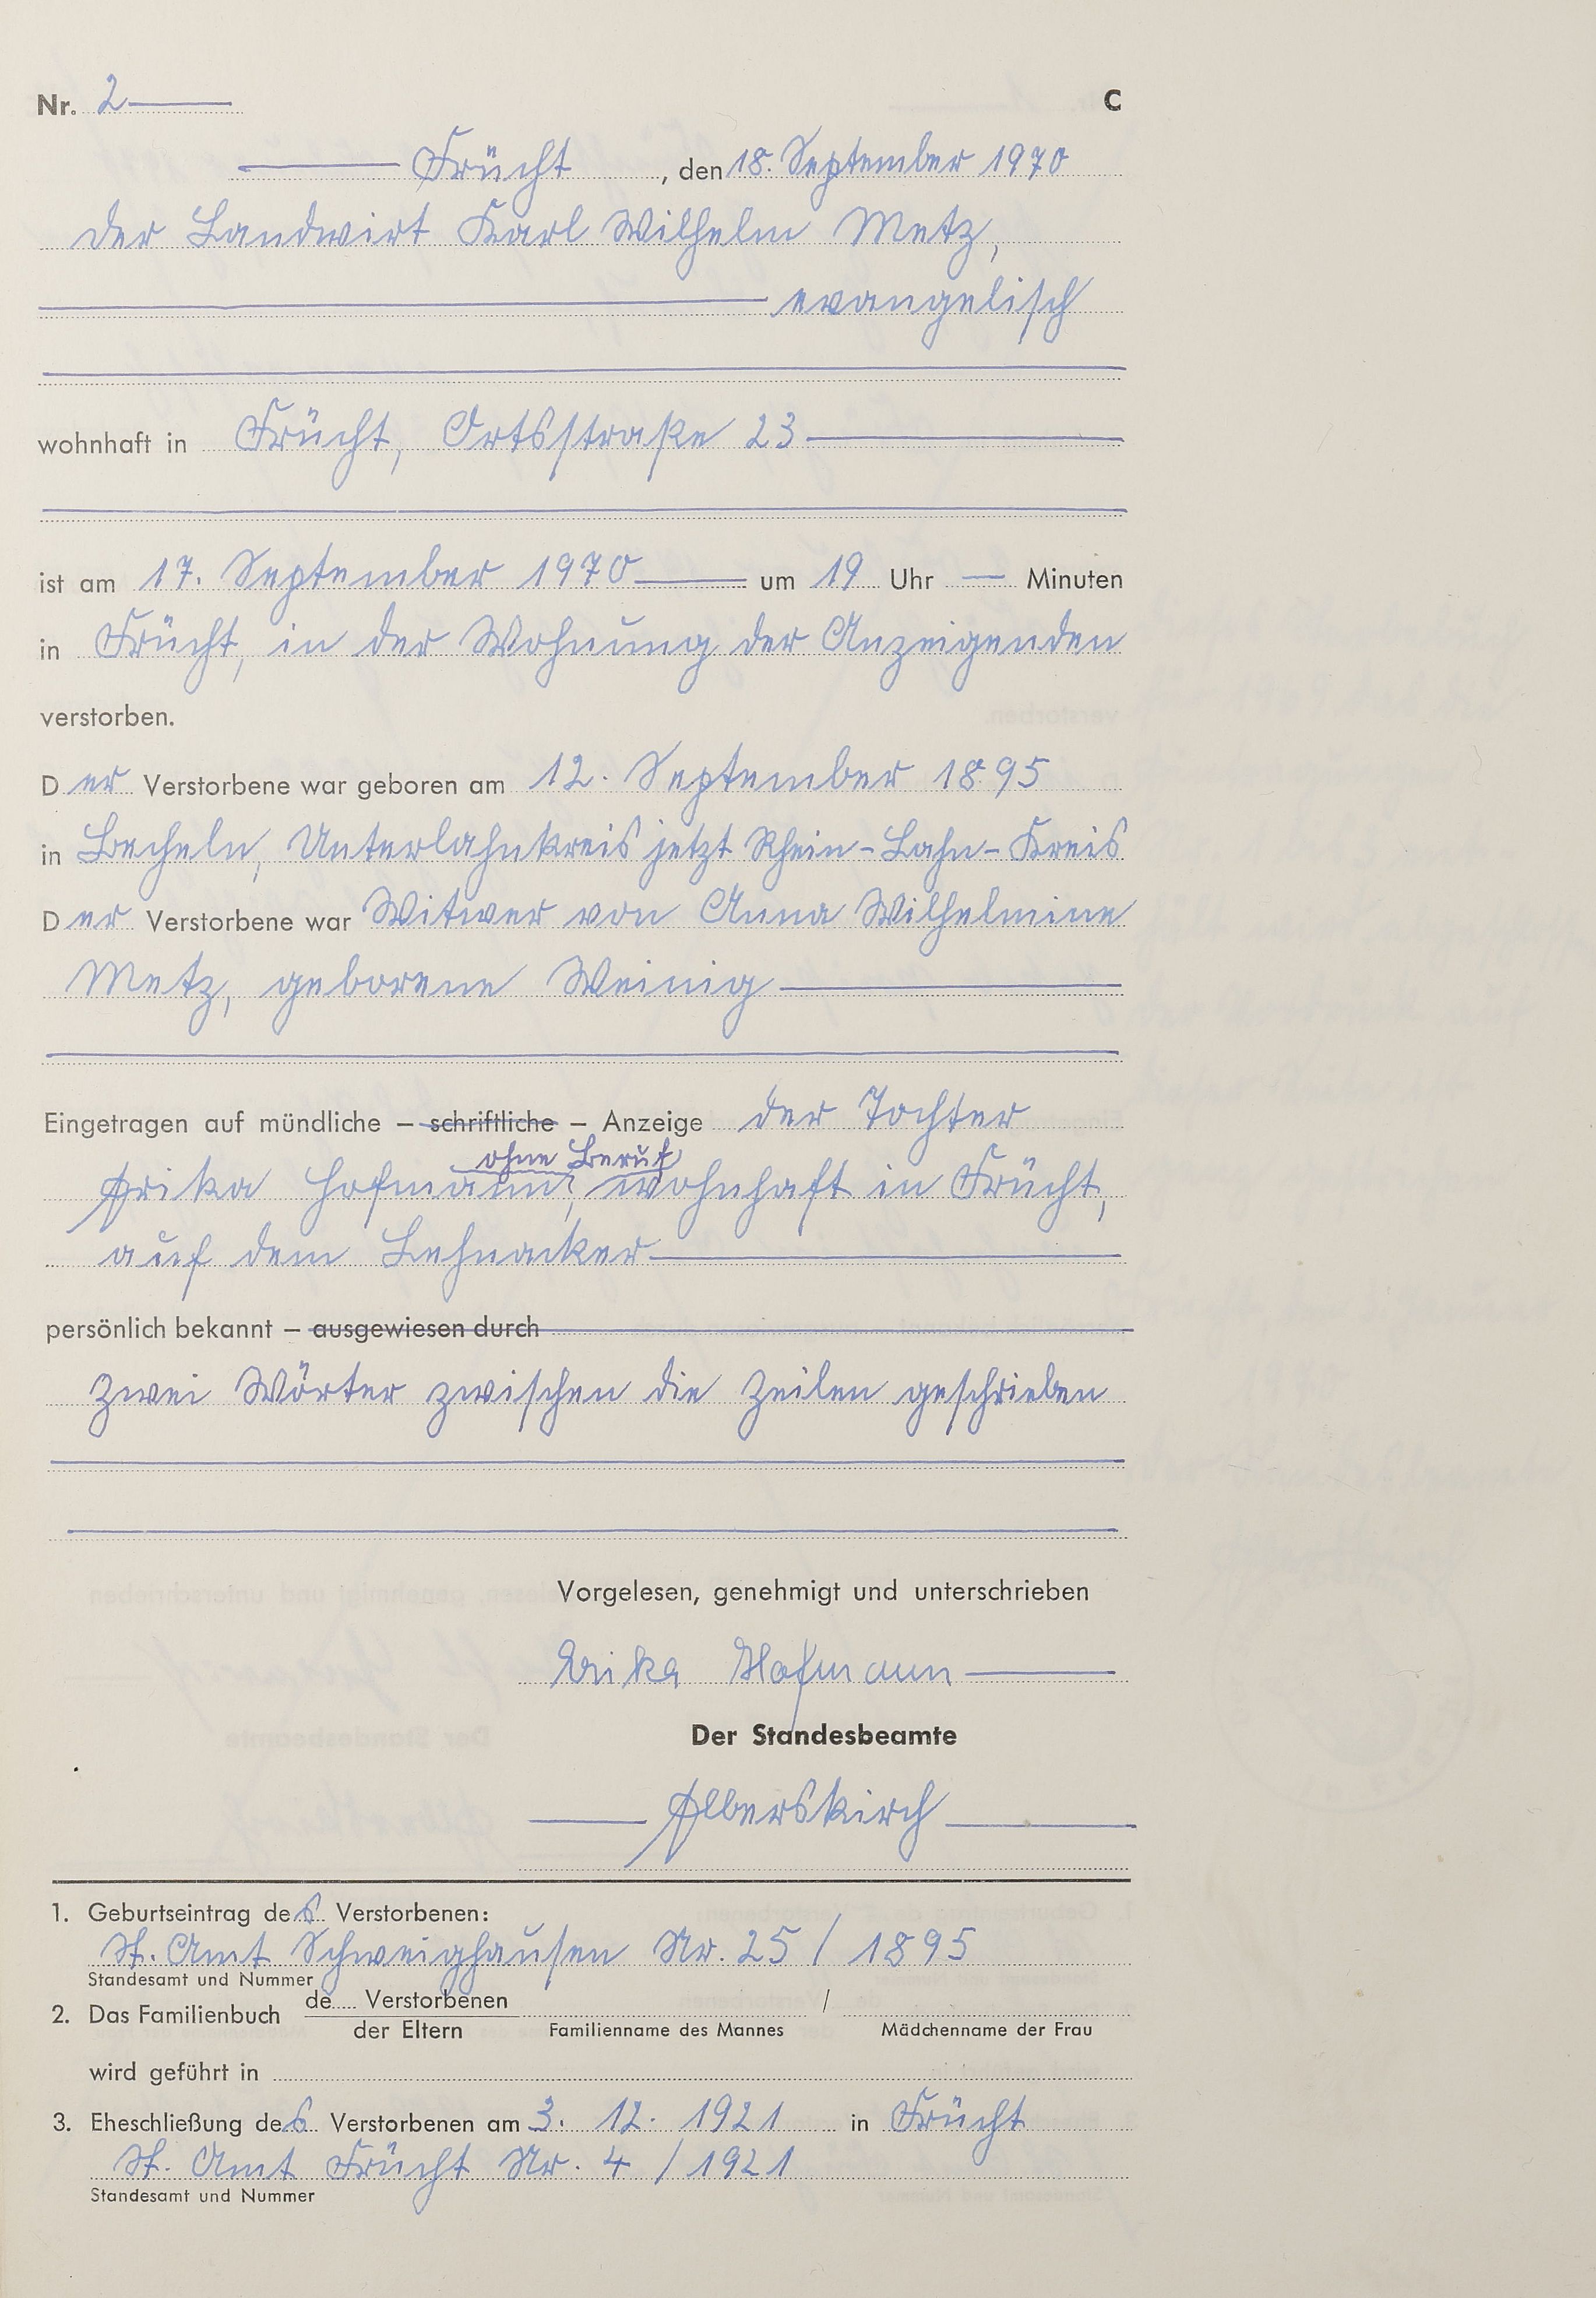 Nr. 2 C
Frücht, den 18. September 1970
der Landwirt Karl Wilhelm Metz,
evangelisch
wohnhaft in Frücht, Ortsstraße 23
ist am 17. September 1970 um 19 Uhr — Minuten
in Frücht, in der Wohnung der Anzeigenden
verstorben.
Der Verstorbene war geboren am 12. September 1895
in Becheln, Unterlahnkreis jetzt Rhein-Lahn-Kreis
Der Verstorbene war Witwer von Anna Wilhelmine
Metz, geborene Weinig
Eingetragen auf mündliche – schriftliche – Anzeige der Tochter
ohne Beruf
Erika Hofmann, wohnhaft in Frücht,
auf dem Lehnacker
persönlich bekannt – ausgewiesen durch
Zwei Wörter zwischen die Zeilen geschrieben
Vorgelesen, genehmigt und unterschrieben
Erika Hofmann
Der Standesbeamte
Alberskirch
1. Geburtseintrag des Verstorbenen:
St. Amt Schweighausen Nr. 25 / 1895
Standesamt und Nummer
2. Das Familienbuch de Verstorbenen /
der Eltern Familienname des Mannes Mädchenname der Frau
wird geführt in
3. Eheschließung des Verstorbenen am 3. 12. 1921 in Frücht
St. Amt Frücht Nr. 4 / 1921
Standesamt und Nummer